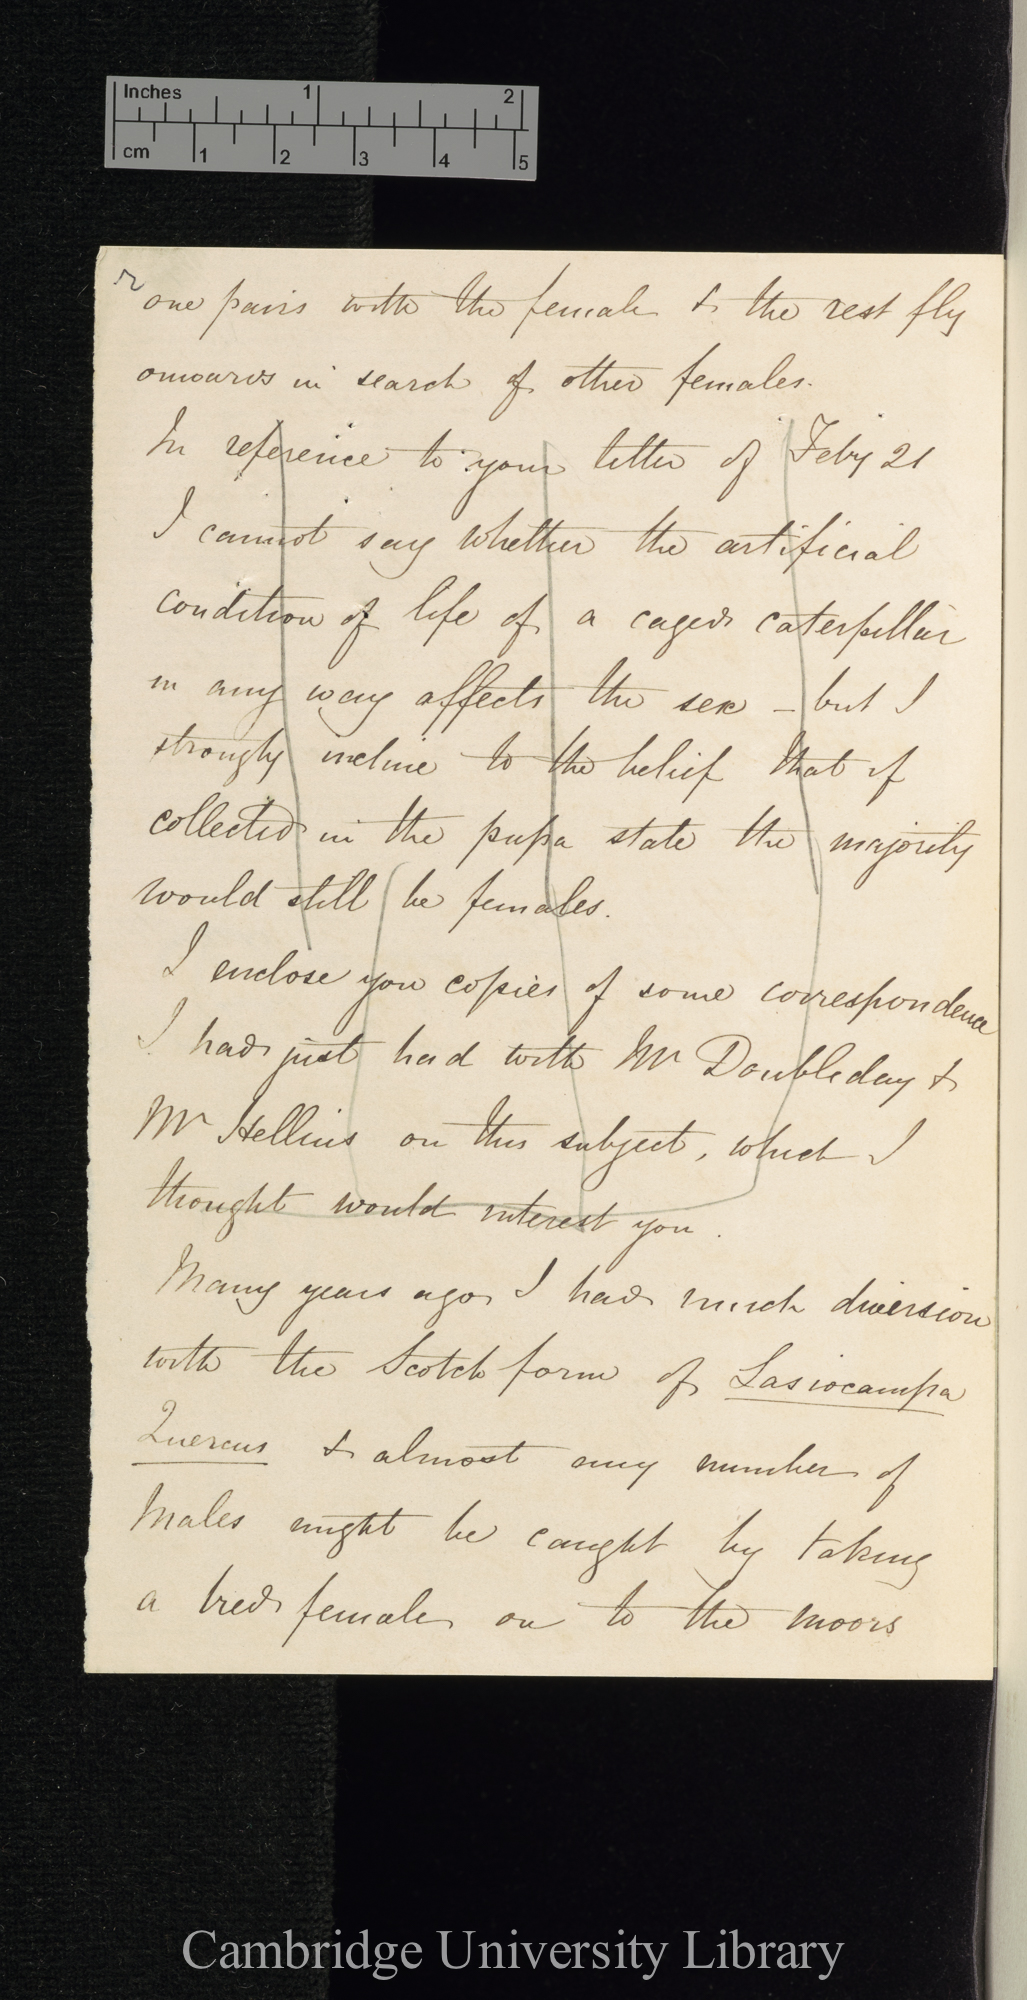 Inches 1 2
cm 1 2 3 4 5
one pairs with the female & the rest fly
onwards in search of other females.
In reference to your letter of Feby 21
I cannot say whether the artificial
condition of life of a caged caterpillar
in any way affects the sex – but I
strongly incline to the belief that if
collected in the pupa state the majority
would still be females.
I enclose you copies of some correspondence
I had just had with Mr Doubleday &
Mr Hellins on this subject, which I
thought would interest you.
Many years ago I had much diversion
with the Scotch form of Lasiocampa
Quercus & almost any number of
Males might be caught by taking
a bred female on to the moors
Cambridge University Library